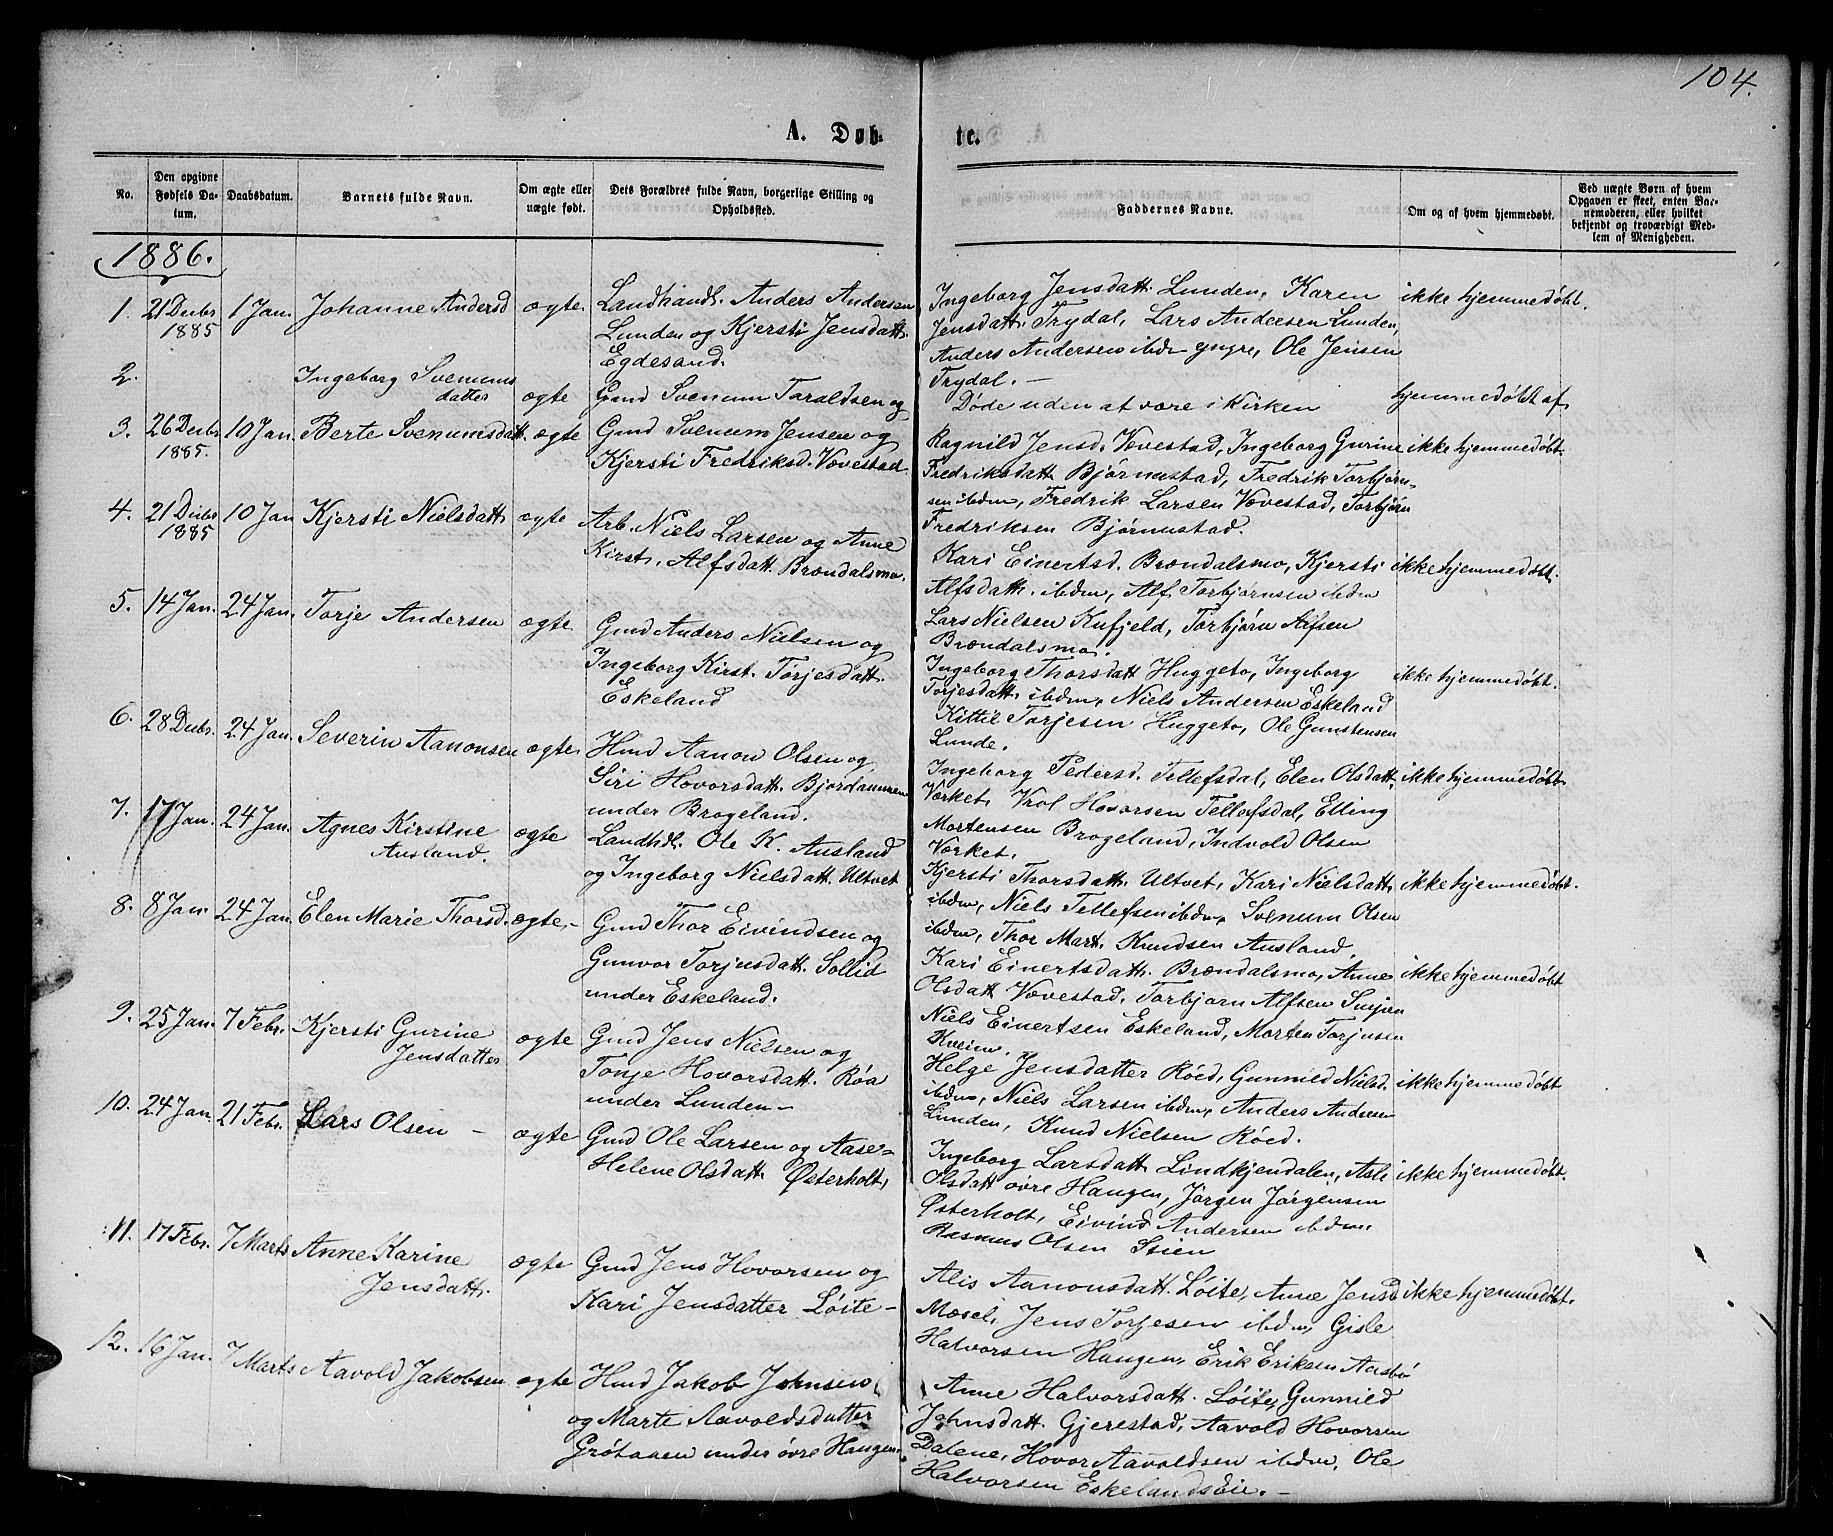 104.
A. Døb-
te.
No.
Den opgivne Fødsels Datum.
Daabsdatum.
Barnets fulde Navn.
Om ægte eller uægte født.
Dets Forældres fulde Navn, borgerlige Stilling og Opholdssted.
Faddernes Navne.
Om og af hvem hjemmedøbt.
Ved uægte Børn af hvem Opgaven er skeet, enten Barnemoderen, eller hvilket bekjendt og troværdigt Medlem af Menigheden.
1886.
1. 21 Decbr 1885 1 Jan. Johanne Andersd ægte
Landhandl. Anders Andersen
Lunden og Kjersti Jensdatt.
Egdesand.
Ingeborg Jensdatt. Lunden, Karen
Jensdatt. Trydal, Lars Andersen Lunden,
Anders Andersen ibdm yngre, Ole Jensen
Trydal. —
ikke hjemmedøbt.
2. Ingeborg Svenums
datter ægte
Gmd Svenum Taraldsen og
Døde uden at være i Kirken
hjemmedøbt af
3. 26 Decbr 1885. 10 Jan. Berte Svenumsdatt. ægte
Gmd Svenum Jensen og
Kjersti Fredriksd. Vævestad
Ragnild Jensd. Vævestad, Ingeborg Gurine
Fredriksdatt Bjørnustad, Fredrik Torbjørn-
sen ibdm, Fredrik Larsen Vævestad, Torbjørn
Fredriksen Bjørnustad.
ikke hjemmedøbt.
4. 21 Decbr 1885 10 Jan Kjersti Nielsdatt. ægte
Arb. Niels Larsen og Anne
Kirst. Alfsdatt. Brændalsmo.
Kari Einertsd. Brændalsmo, Kjersti
Alfsdatt. ibdm, Alf Torbjørnsen ibdm
Lars Nielsen Kufjeld, Torbjørn Alfsen
Brændalsmo.
ikke hjemmedøbt.
5. 14 Jan. 24 Jan. Torje Andersen ægte
Gmd Anders Nielsen og
Ingeborg Kirst. Torjesdatt.
Eskeland
Ingeborg Thorsdatt Huggeto, Ingeborg
Torjesdatt. ibdm, Niels Andersen Eskeland
Kittil Torjesen Huggeto, Ole Gunstensen
Lunde.
ikke hjemmedøbt.
6. 28 Decbr. 24 Jan. Severin Aanonsen ægte
Hmd Aanon Olsen og
Siri Hovorsdatt.
under Brogeland.
Ingeborg Pedersd. Tellefsdal, Elen Olsdatt,
Værket, Vrol Hovorsen Tellefsdal, Elling
Mortensen Brogeland, Indvold Olsen
Værket.
ikke hjemmedøbt
7. 17 Jan. 24 Jan. Agnes Kirstine
Ausland. ægte
Landhdl. Ole K. Ausland
og Ingeborg Nielsdatt. Ultvet
Kjersti Thorsdatt. Ultvet, Kari Nielsdatt.
ibdm, Niels Tellefsen ibdm, Svenum Olsen
ibdm, Thor Mart. Knudsen Ausland.
ikke hjemmedøbt.
8. 8 Jan. 24 Jan. Elen Marie Thorsd. ægte.-
Gmd Thor Eivindsen og
Gunvor Torjusdatt. Sollid
under Eskeland.
Kari Einertsdatt. Brændalsmo, Anne
Olsdatt Vævestad, Torbjørn Alfsen
Niels Einertsen Eskeland, Morten Torjusen
Kveim.
ikke hjemmedøbt
9. 25 Jan. 7 Febr. Kjersti Gurine
Jensdatter ægte
Gmd Jens Nielsen og
Tonje Hovorsdatt. Røa
under Lunden -
Helge Jensdatter Røed, Gunnild Nielsd.
ibdm, Niels Larsen ibdm, Anders Andersen
Lunden, Knud Nielsen Røed.
ikke hjemmedøbt
10. 24 Jan. 21 Febr. Lars Olsen - ægte
Gmd Ole Larsen og Aase-
Helene Olsdatt. Østerholt,
Ingeborg Larsdatt. Lindkjendalen, Asli
Olsdatt øvre Haugen, Jørgen Jørgensen
Østerholt, Eivind Andersen ibdm.
Rasmus Olsen Stien
ikke hjemmedøbt.
11. 17 Febr. 7 Marts Anne Karine
Jensdatt. ægte
Gmd Jens Hovorsen og
Kari Jensdatter Løite -
Alis Aanonsdatt. Løite, Anne Jensd
Mosel, Jens Torjesen ibdm, Gisle
Halvorsen Haugen, Erik Eriksen Aasbø
ikke hjemmedøbt.
12. 16 Jan. 7 Marts Aavold Jakobsen ægte
Hmd Jakob Johnsen
og Marte Aavoldsdatter
Grøtaaen under øvre Haugen.
Anne Halvorsdatt. Løite, Gunnild
Johnsdatt. Gjerestad, Aavold Hovorsen
Dalene, Hovor Aavoldsen ibdm, Ole
Halvorsen Eskelandsøie. -